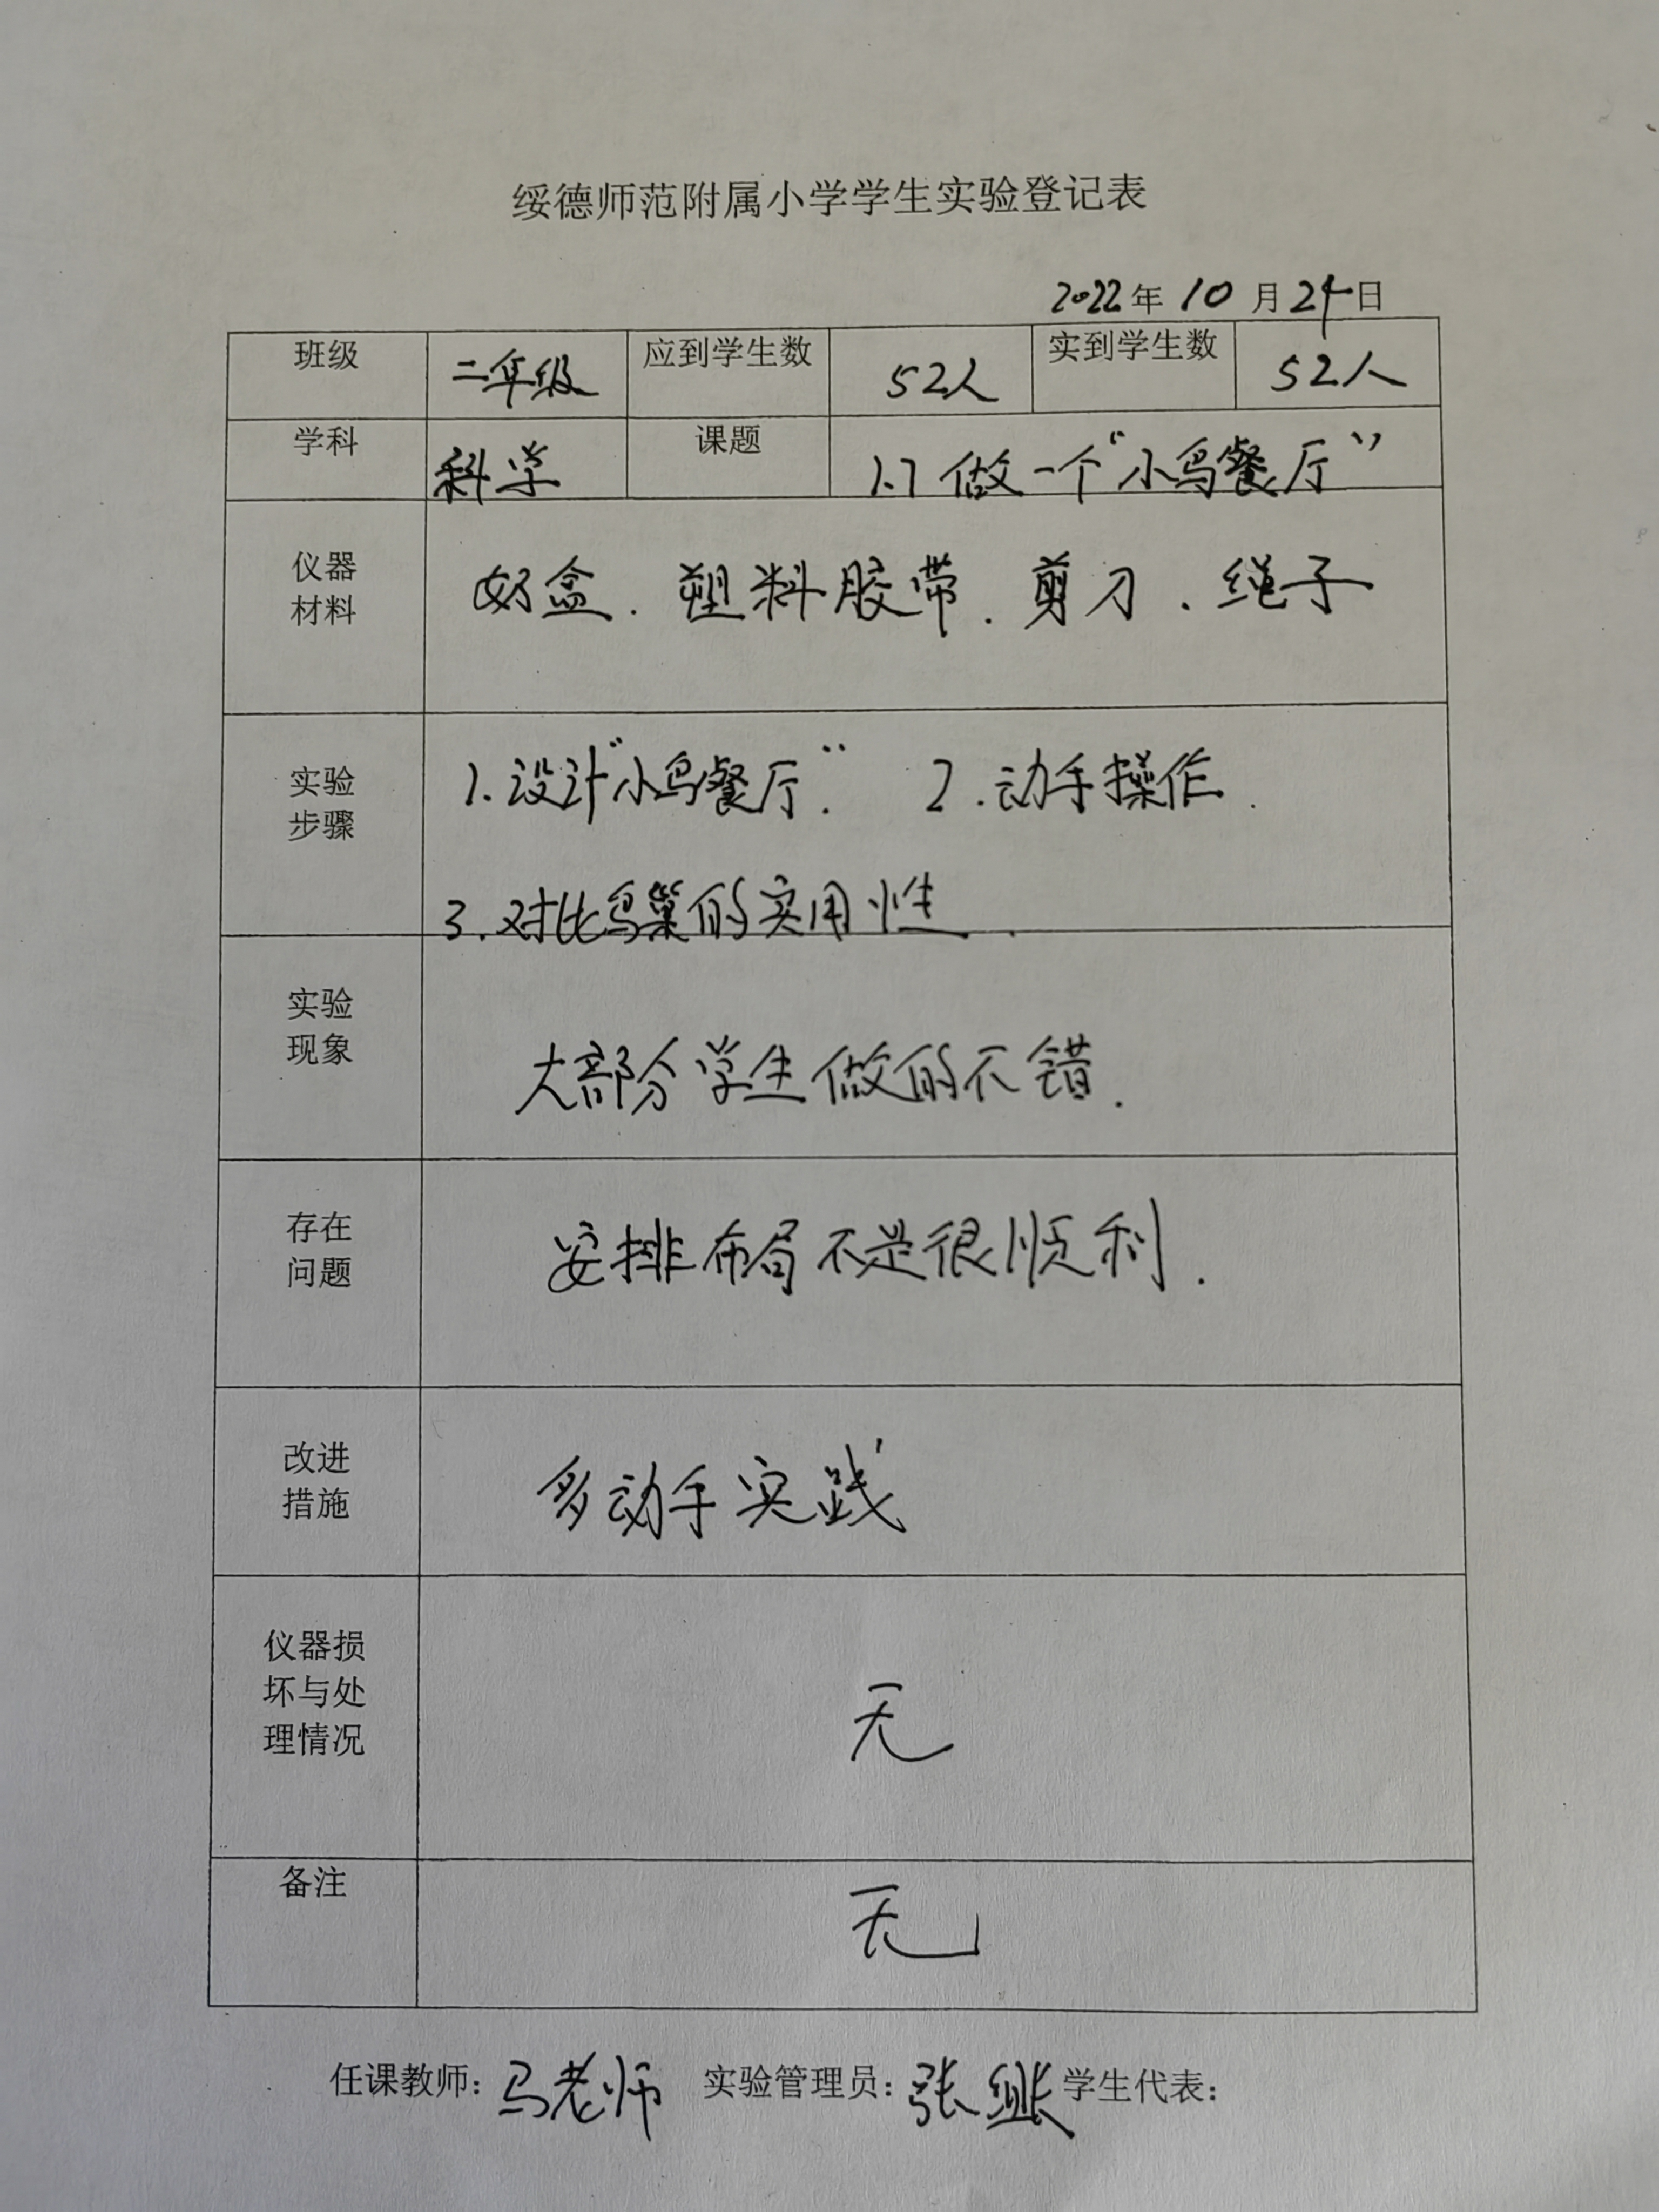 绥德师范附属小学学生实验登记表
2022年10月24日
班级 二年级 应到学生数 52人 实到学生数 52人
学科 科学 课题 1.7 做一个“小鸟餐厅”
仪器
材料
奶盒.塑料胶带.剪刀.绳子
实验
步骤
1.设计“小鸟餐厅.” 2.动手操作.
3.对比鸟巢的实用性.
实验
现象
大部分学生做的不错.
存在
问题
安排布局不是很顺利.
改进
措施
多动手实践
仪器损
坏与处
理情况
无
备注
无
任课教师:马老师 实验管理员:张 学生代表: